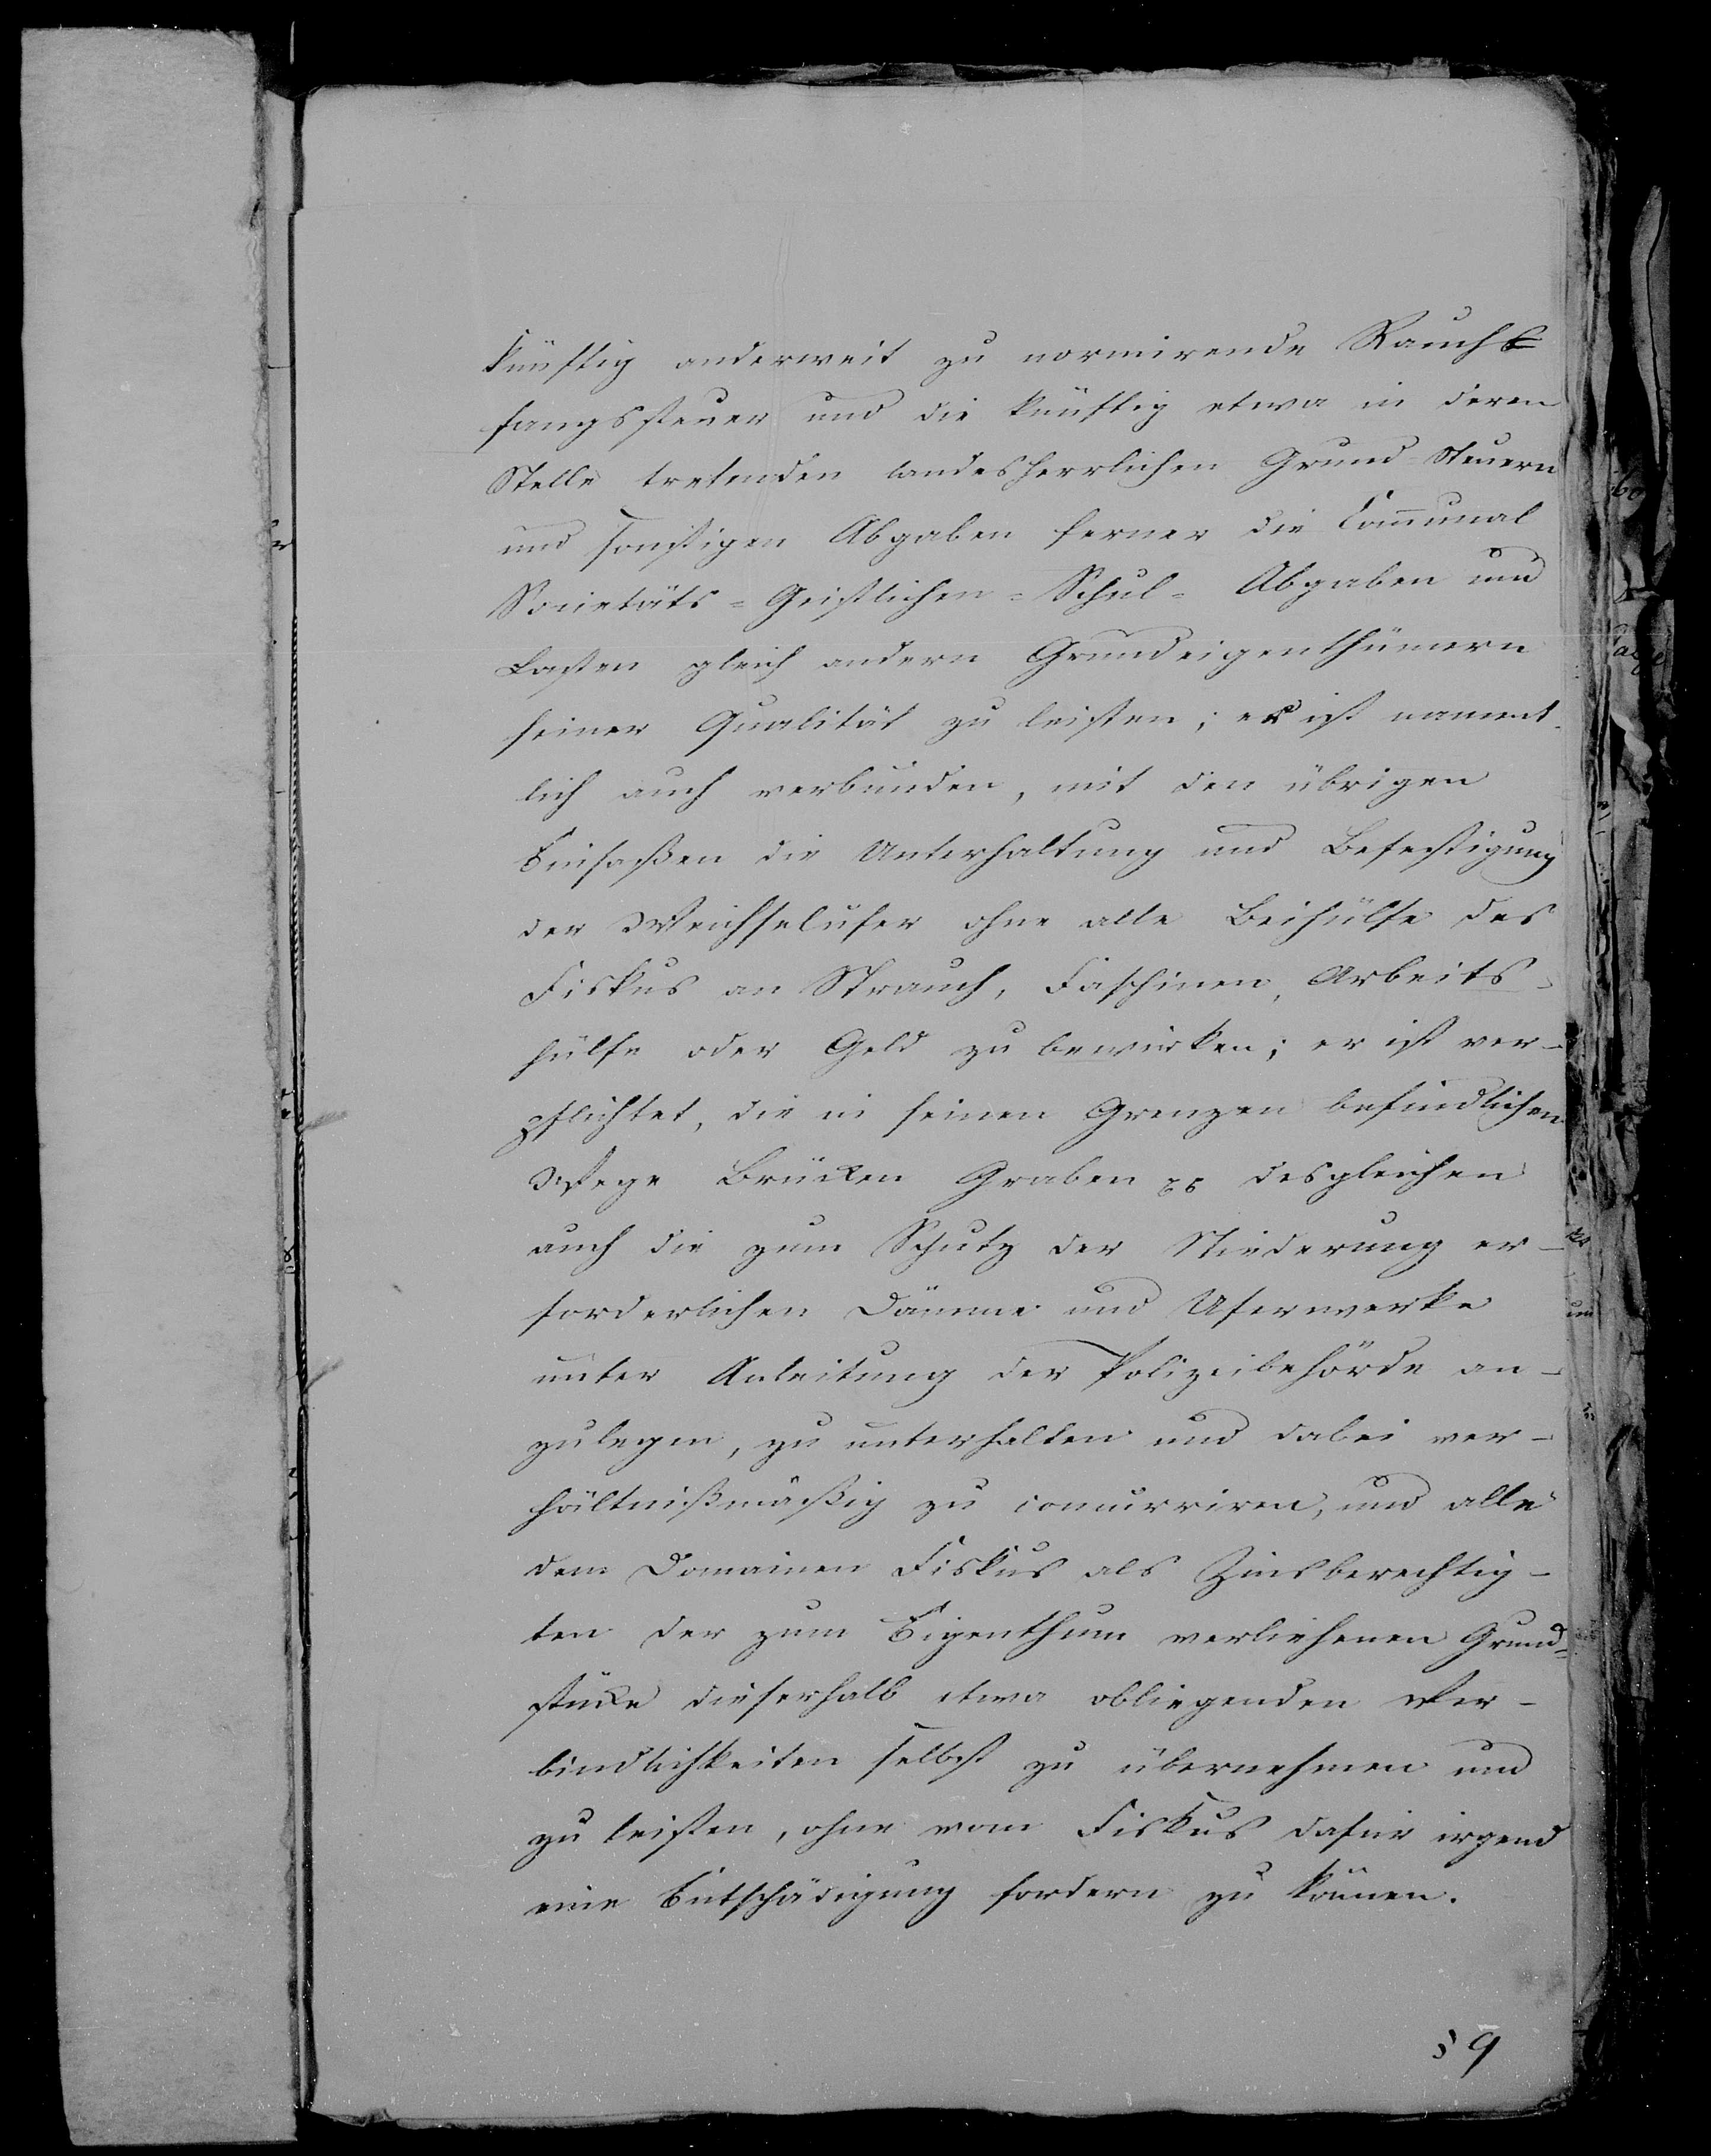 künftig anderweit zu normirende Rauch-
fangssteuer und die künftig etwa in deren
Stelle tretenden landesherrlichen Grund-Steuern
und sonstigen Abgaben ferner die Communal
Societäts-Geistlichen-Schul-Abgaben und
Lasten gleich andern Grundeigenthümern
seiner Qualität zu leisten; er ist nament-
lich auch verbunden, mit den übrigen
Einsaßen die Unterhaltung und Befestigung
der Weichselufer ohne alle Beihülfe des
Fiskus an Strauch, Faschinen, Arbeits-
hülfe oder Geld zu bewirken; er ist ver-
pflichtet, die in seinen Grenzen befindlichen
Wege Brücken Graben desgleichen
auch die zum Schutz der Niederung er-
forderlichen Dämme und Uferwerke
unter Anleitung der Polizeibehörde an-
zulegen, zu unterhalten und dabei ver-
hältnißmäßig zu concurriren, und alle
dem Domainen Fiskus als Zinsberechtig-
ten der zum Eigenthum verliehenen Grund-
stücke dieserhalb etwa obliegenden Ver-
bindlichkeiten selbst zu übernehmen und
zu leisten, ohne vom Fiskus dafür irgend
eine Entschädigung fordern zu können.
§ 9